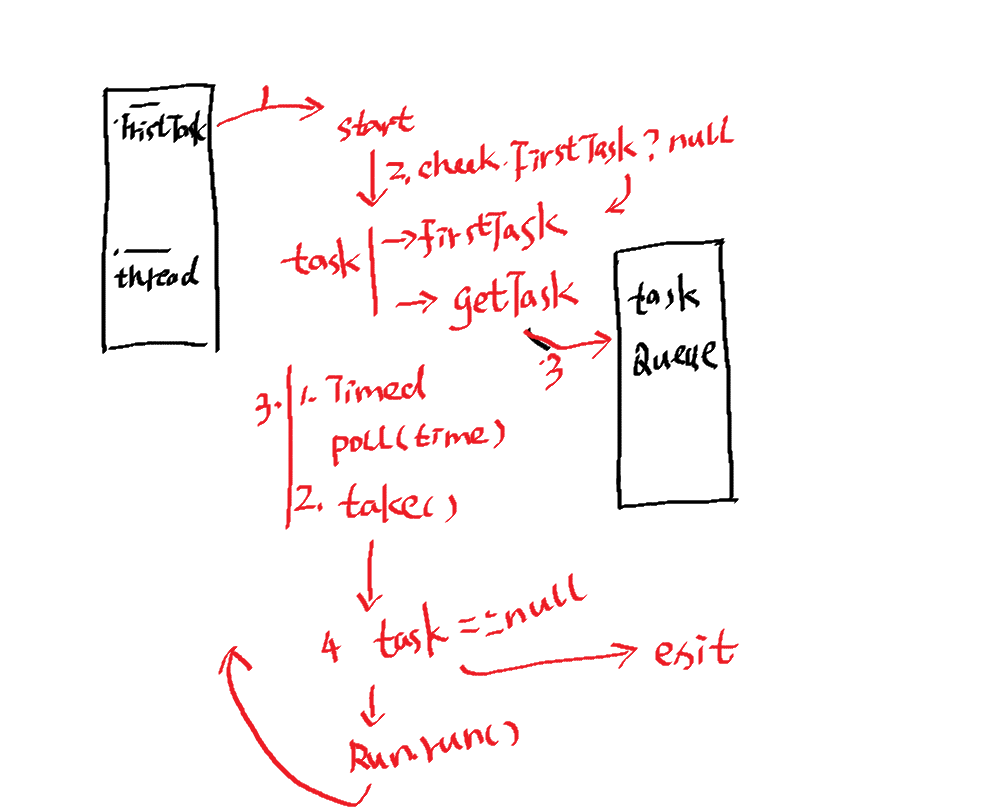 ·FristTask
·thread
1
start
2. check·FirstTask? null
task
→ firstTask
→ getTask
3
task
Queue
3.
1. Timed
poll(time)
2. take()
4 task == null
exit
Run.run()